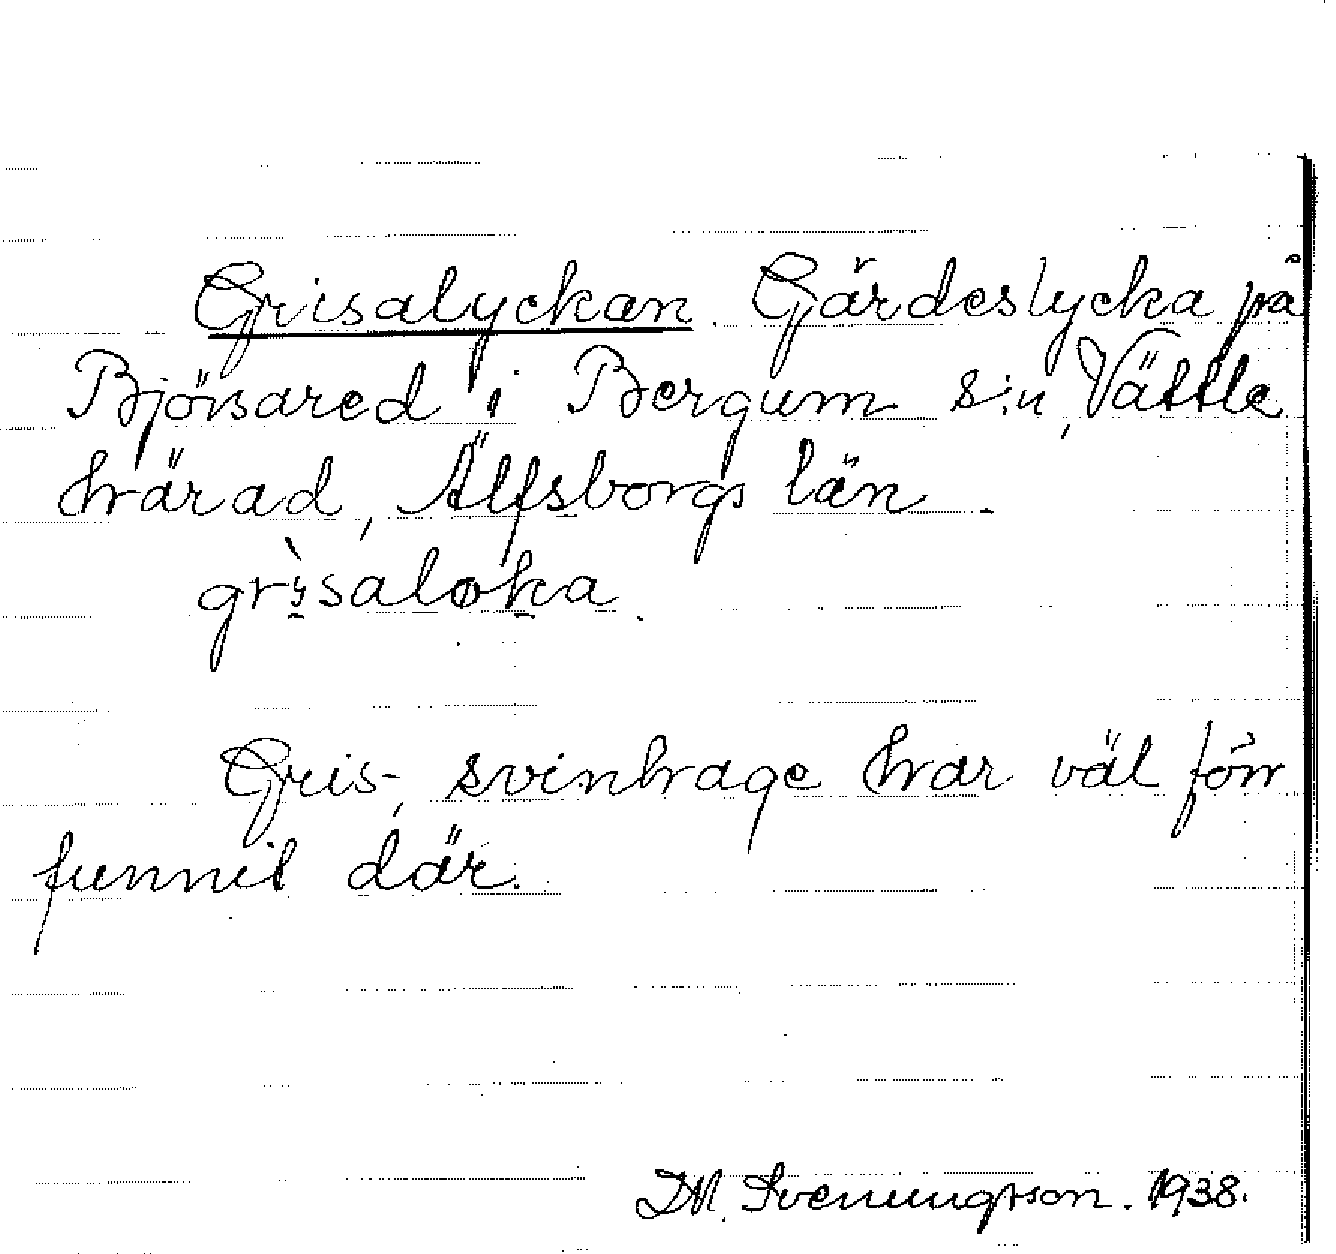 Grisalyckan. Gärdeslycka på
Björsared i Bergum s:n, Vättle
härad, Älfsborgs län.
grisaløka.
Gris-, svinhage har väl förr
funnit där.
D.M. Svenungsson. 1938.